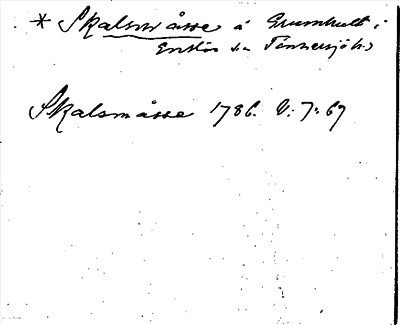 * Skalsmåsse å Grumhult i
Enslöv sn Tönnersjö hd
Skalsmåsse 1786. V: 7: 67